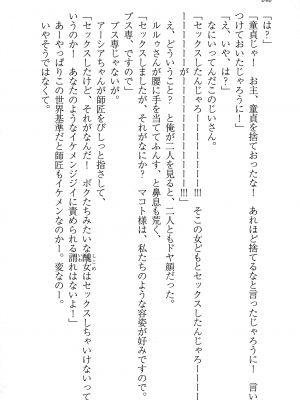 「は？」
「童貞じゃ！　お主、童貞を捨ておったな！　あれほど捨てるなと言ったじゃろうに！　言い
つけておいたじゃろうに！」
「え、いや、は？」
なにいってんだこのじいさん。
「セックスしたんじゃろーーーーーー！！！　そこの女どもとセックスしたんじゃろーーーー
ーーーーが――――――！！！」
え、どういうこと？　と俺が二人を見ると、二人ともドヤ顔だった。
ルルゥさんが腰に手を当ててふんす、と鼻息も荒く、
「セックスしましたが、それがなにか？　マコト様は、私たちのような容姿が好みですので。
ブス専、ですので」
ブス専じゃねが。
アーシアさんが師匠をびしっと指さして、
「セックスしたけど、それがなんだ！　ボクたちみたいな醜女はセックスしちゃいけないって
いうのか！　あなたのようなイケメンジジイに責められる謂れはないよ！」
あーやっぱりこの世界基準だと師匠もイケメンなのかー。変なのー。
いやそうではなくて。